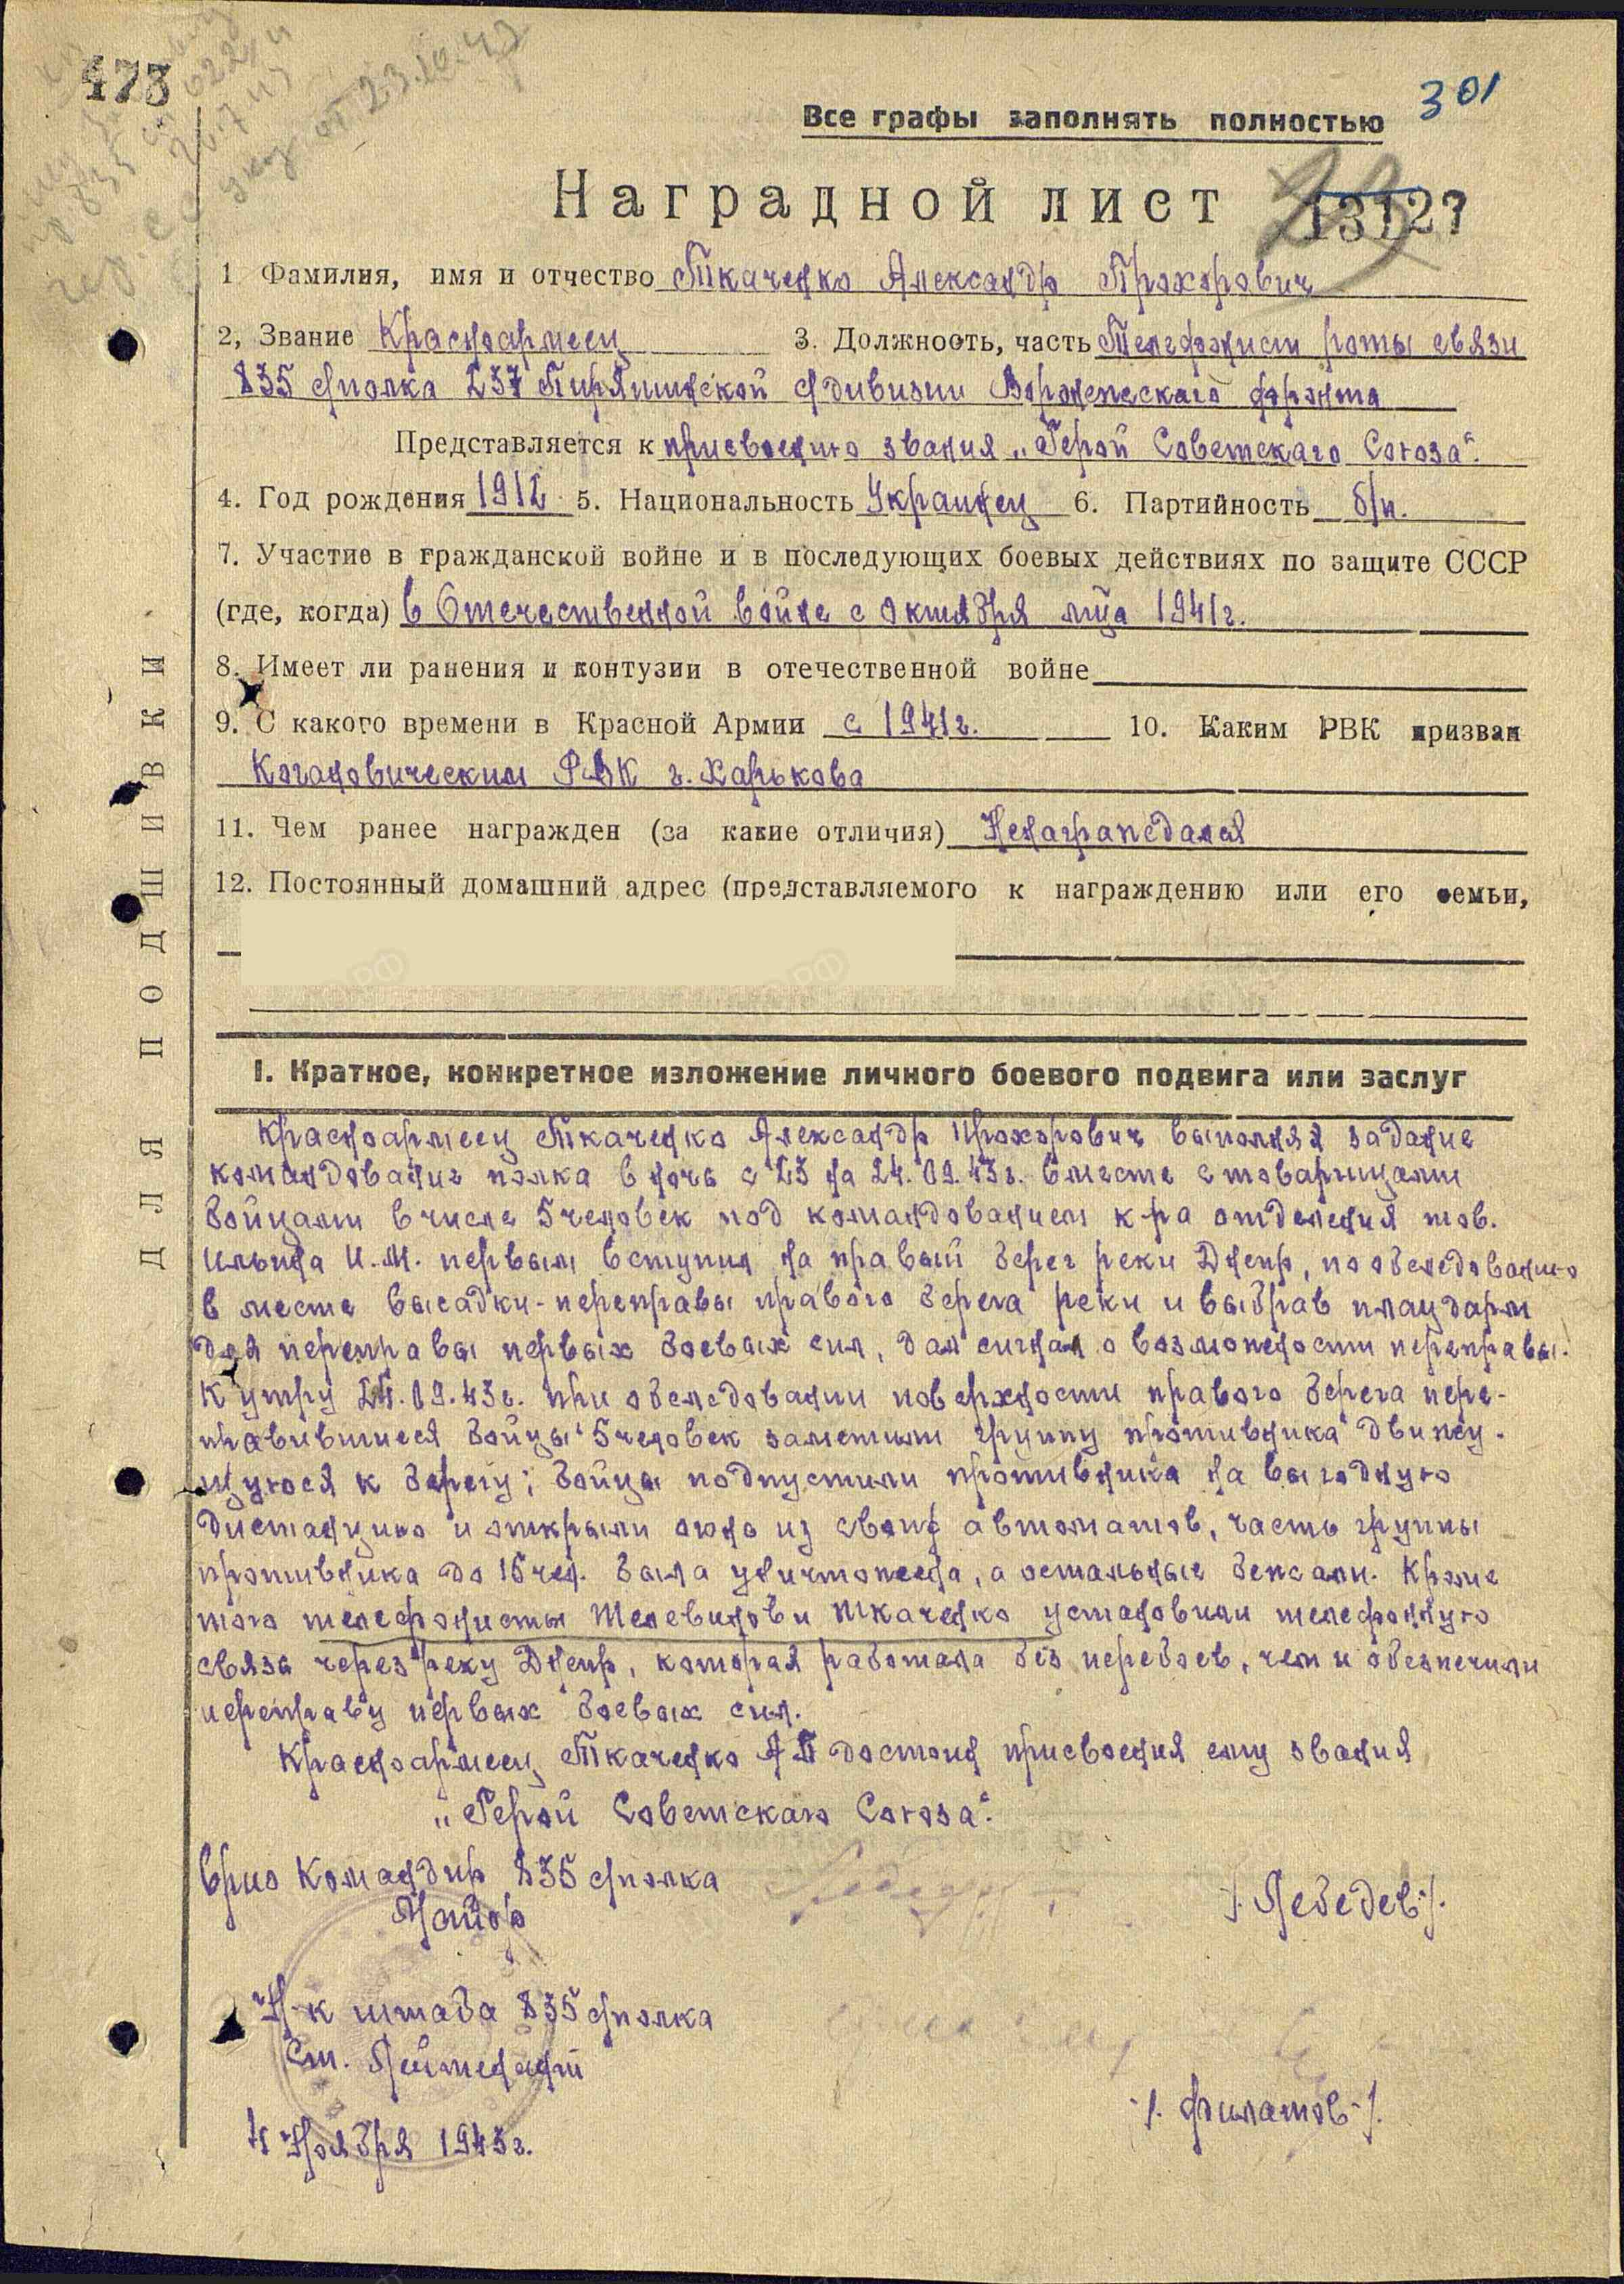 473
301
Все графы заполнять полностью
Наградной лист 13127
1 Фамилия, имя и отчество Ткаченко Александр Прохорович
2, Звание Красноармеец 3. Должность, часть Телефонист роты связи
835 сполка 237 Пирятинской сдивизии Воронежскаго фронта
Представляется к присвоению звания „Герой Советскаго Союза“.
4. Год рождения 1912 5. Национальность Украинец 6. Партийность б/п.
7. Участие в гражданской войне и в последующих боевых действиях по защите СССР
(где, когда) в Отечественной войне с октября м-ца 1941г.
8. Имеет ли ранения и контузии в отечественной войне
9. С какого времени в Красной Армии с 1941г. 10. Каким РВК призван
Когановическим РВК г. Харькова
11. Чем ранее награжден (за какие отличия) Ненаграждался
12. Постоянный домашний адрес (представляемого к награждению или его семьи,
ДЛЯ ПОДШИВКИ
I. Краткое, конкретное изложение личного боевого подвига или заслуг
Красноармеец Ткаченко Александр Прохорович выполняя задание
командование полка в ночь с 23 на 24.09.43г. вместе с товарищами
бойцами в числе 5 человек под командованием к-ра отделения тов.
Ильина И.М. первым вступил на правый берег реки Днепр, по обследованию
в месте высадки-переправы правого берега реки и выбрав плацдарм
для переправы первых боевых сил, дал сигнал о возможности переправы.
К утру 24.09.43г. при обследовании поверхности правого берега пере-
правившиеся бойцы 5 человек заметили группу противника движу-
щуюся к берегу; бойцы подпустили противника на выгодную
дистанцию и открыли огонь из своих автоматов, часть группы
противника до 15 чел. была уничтожена, а остальные бежали. Кроме
того телефонисты Шелевинов и Ткаченко установили телефонную
связь через реку Днепр, которая работала без перебоев, чем и обезпечили
переправу первых боевых сил.
Красноармеец Ткаченко А П достоин присвоения ему звания
„Герой Советскаго Союза“.
Врио Командир 835 сполка
Майор /. Лебедев /.
Н-к штаба 835 сполка
Ст. Лейтенант /. Филатов /.
4 Ноября 1943г.